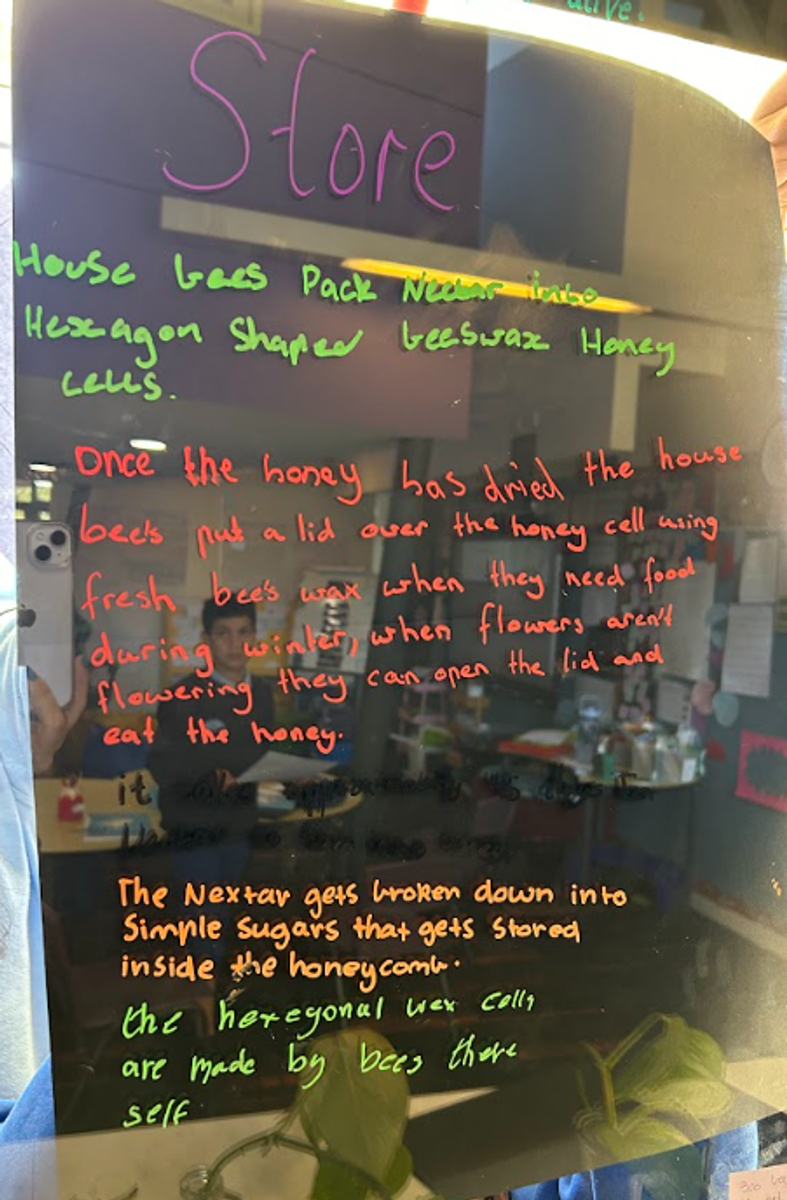 alive.
Store
House bees Pack Nectar into
Hexagon Shaped beeswax Honey
cells.
Once the honey has dried the house
bee's put a lid over the honey cell using
fresh bee's wax when they need food
during winter, when flowers aren't
flowering they can open the lid and
eat the honey.
it takes approximately 45 days
The Nextar gets broken down into
Simple Sugars that gets stored
inside the honeycomb.
the hexegonal wex cells
are made by bees there
self